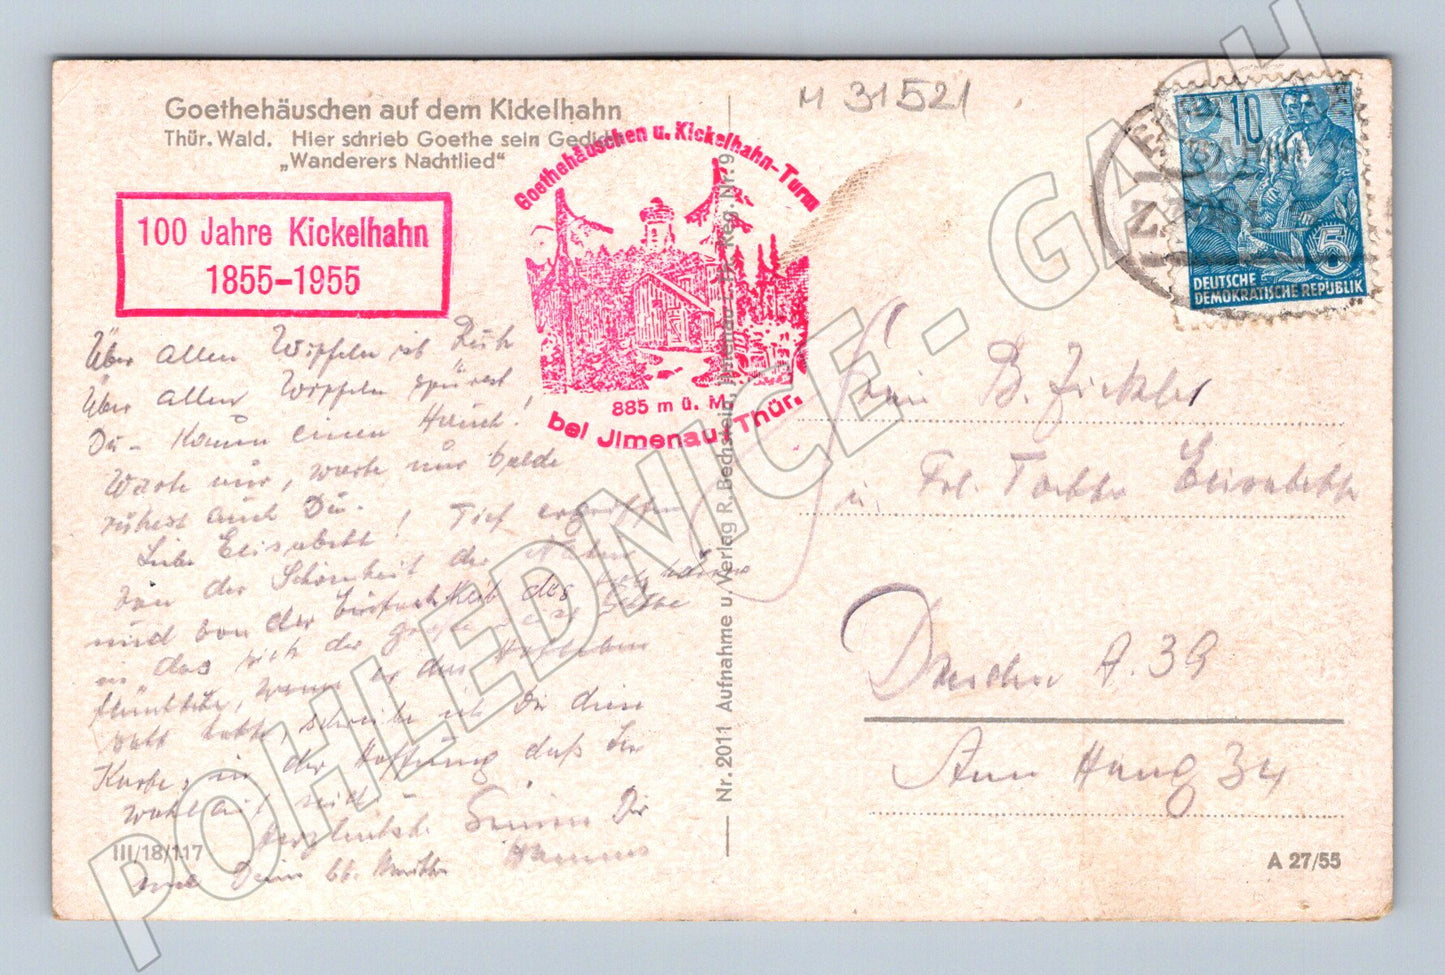 M 31521
Goethehäuschen auf dem Kickelhahn
Thür. Wald. Hier schrieb Goethe sein Gedicht
„Wanderers Nachtlied"
100 Jahre Kickelhahn
1855-1955
Goethehäuschen u. Kickelhahn-Turm
885 m ü. M.
bei Jlmenau-Thür.
Über allen Wipfeln ist Ruh
Über allen Wipfeln spürest
Du - kaum einen Hauch!
Warte nur, warte nur balde
ruhest auch Du.
Liebe Elisabeth! Tief ergriffen
von der Schönheit der Natur
und von der Einfachheit des
in das sich der
wenn er das Hofleben
satt hatte, schreibe ich Dir diese
Karte, in der Hoffnung daß Ihr
wohlauf seid.
herzlichst Deine
und Dein
III/18/117
Nr. 2011 Aufnahme u. Verlag R. Bechstein, Jlmenau i. Th. Reg. Nr. 9
10
5
DEUTSCHE
DEMOKRATISCHE REPUBLIK
Frau B. Zickler
u. Frl. Tochter Elisabeth
Dresden A. 39
Am Hang 34
A 27/55
POHLEDNICE - GASH